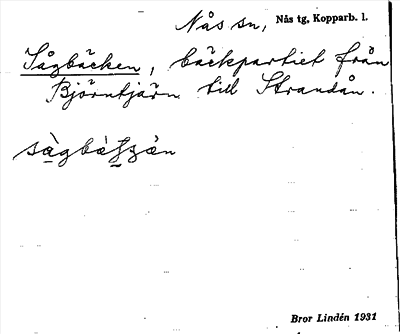 Nås sn, Nås tg, Kopparb. l.
Sågbäcken, bäckpartiet från
Björntjärn till Strandån.
Bror Lindén 1931